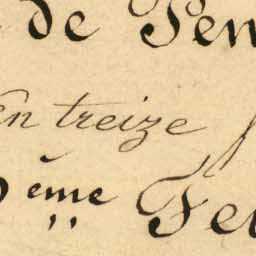 de Pen
En treize
ème Fe